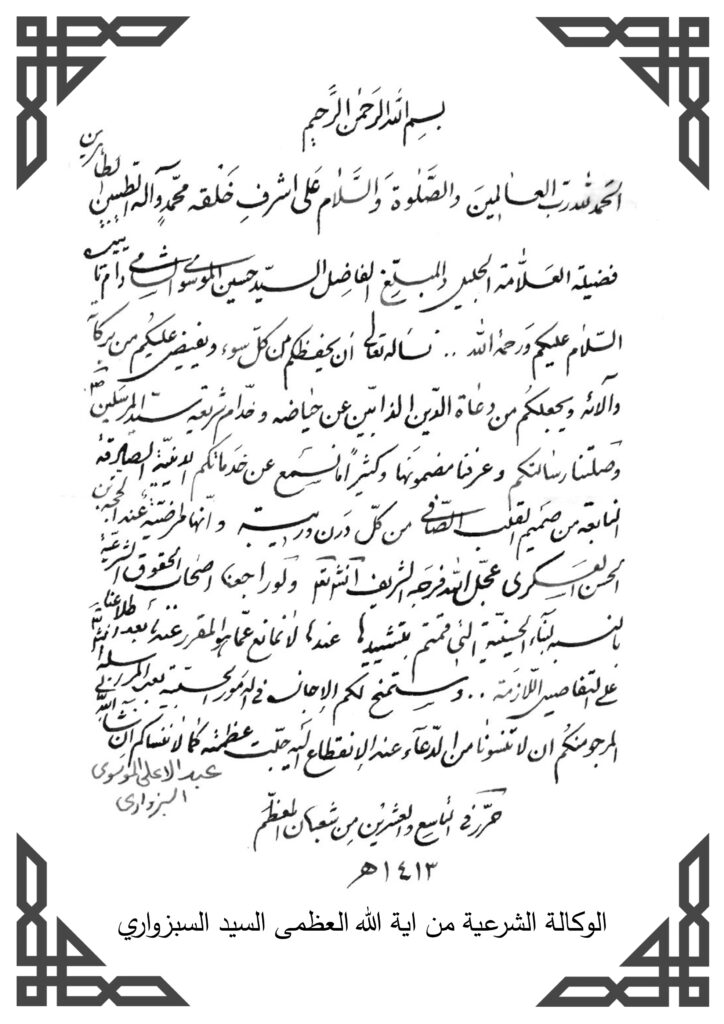 بسم الله الرحمن الرحيم
الحمد لله رب العالمين والصلوة والسلام على اشرف خلقه محمد وآله الطيبين الطاهرين
فضيلة العلامة الجليل والمبلغ الفاضل السيد حسين الموسوي الشامي دام تأييده
السلام عليكم ورحمة الله .. نسأله تعالى أن يحفظكم من كل سوء ويفيض عليكم من بركاته
وآلائه ويجعلكم من دعاة الدين الذابين عن حياضه وخدام شريعة سيد المرسلين ص
وصلتنا رسالتكم وعرفنا مضمونها وكثيراً ما نسمع عن خدماتكم الدينية الصادقة
النابعة من صميم القلب الصافي من كل درن وريبة وانها لمرضية عند الحجة بن
الحسن العسكري عجل الله فرجه الشريف انشاءالله ولو راجعنا اصحاب الحقوق الشرعية
بالنسبة لبناء الحسينية التي قمتم بتشييدها عندها لا نمانع عما هو المقرر عندنا بعد اطلاعنا
على التفاصيل اللازمة .. وستمنح لكم الاجازة في الامور الحسبية بعد المراسلة
المرجو منكم ان لا تنسونا من الدعاء عند الإنقطاع اليه جلت عظمته كما لا ننساكم ان شاء الله
عبد الاعلى الموسوى
السبزوارى
حرر في التاسع والعشرين من شعبان المعظم
١٤١٣ هـ
الوكالة الشرعية من اية الله العظمى السيد السبزواري